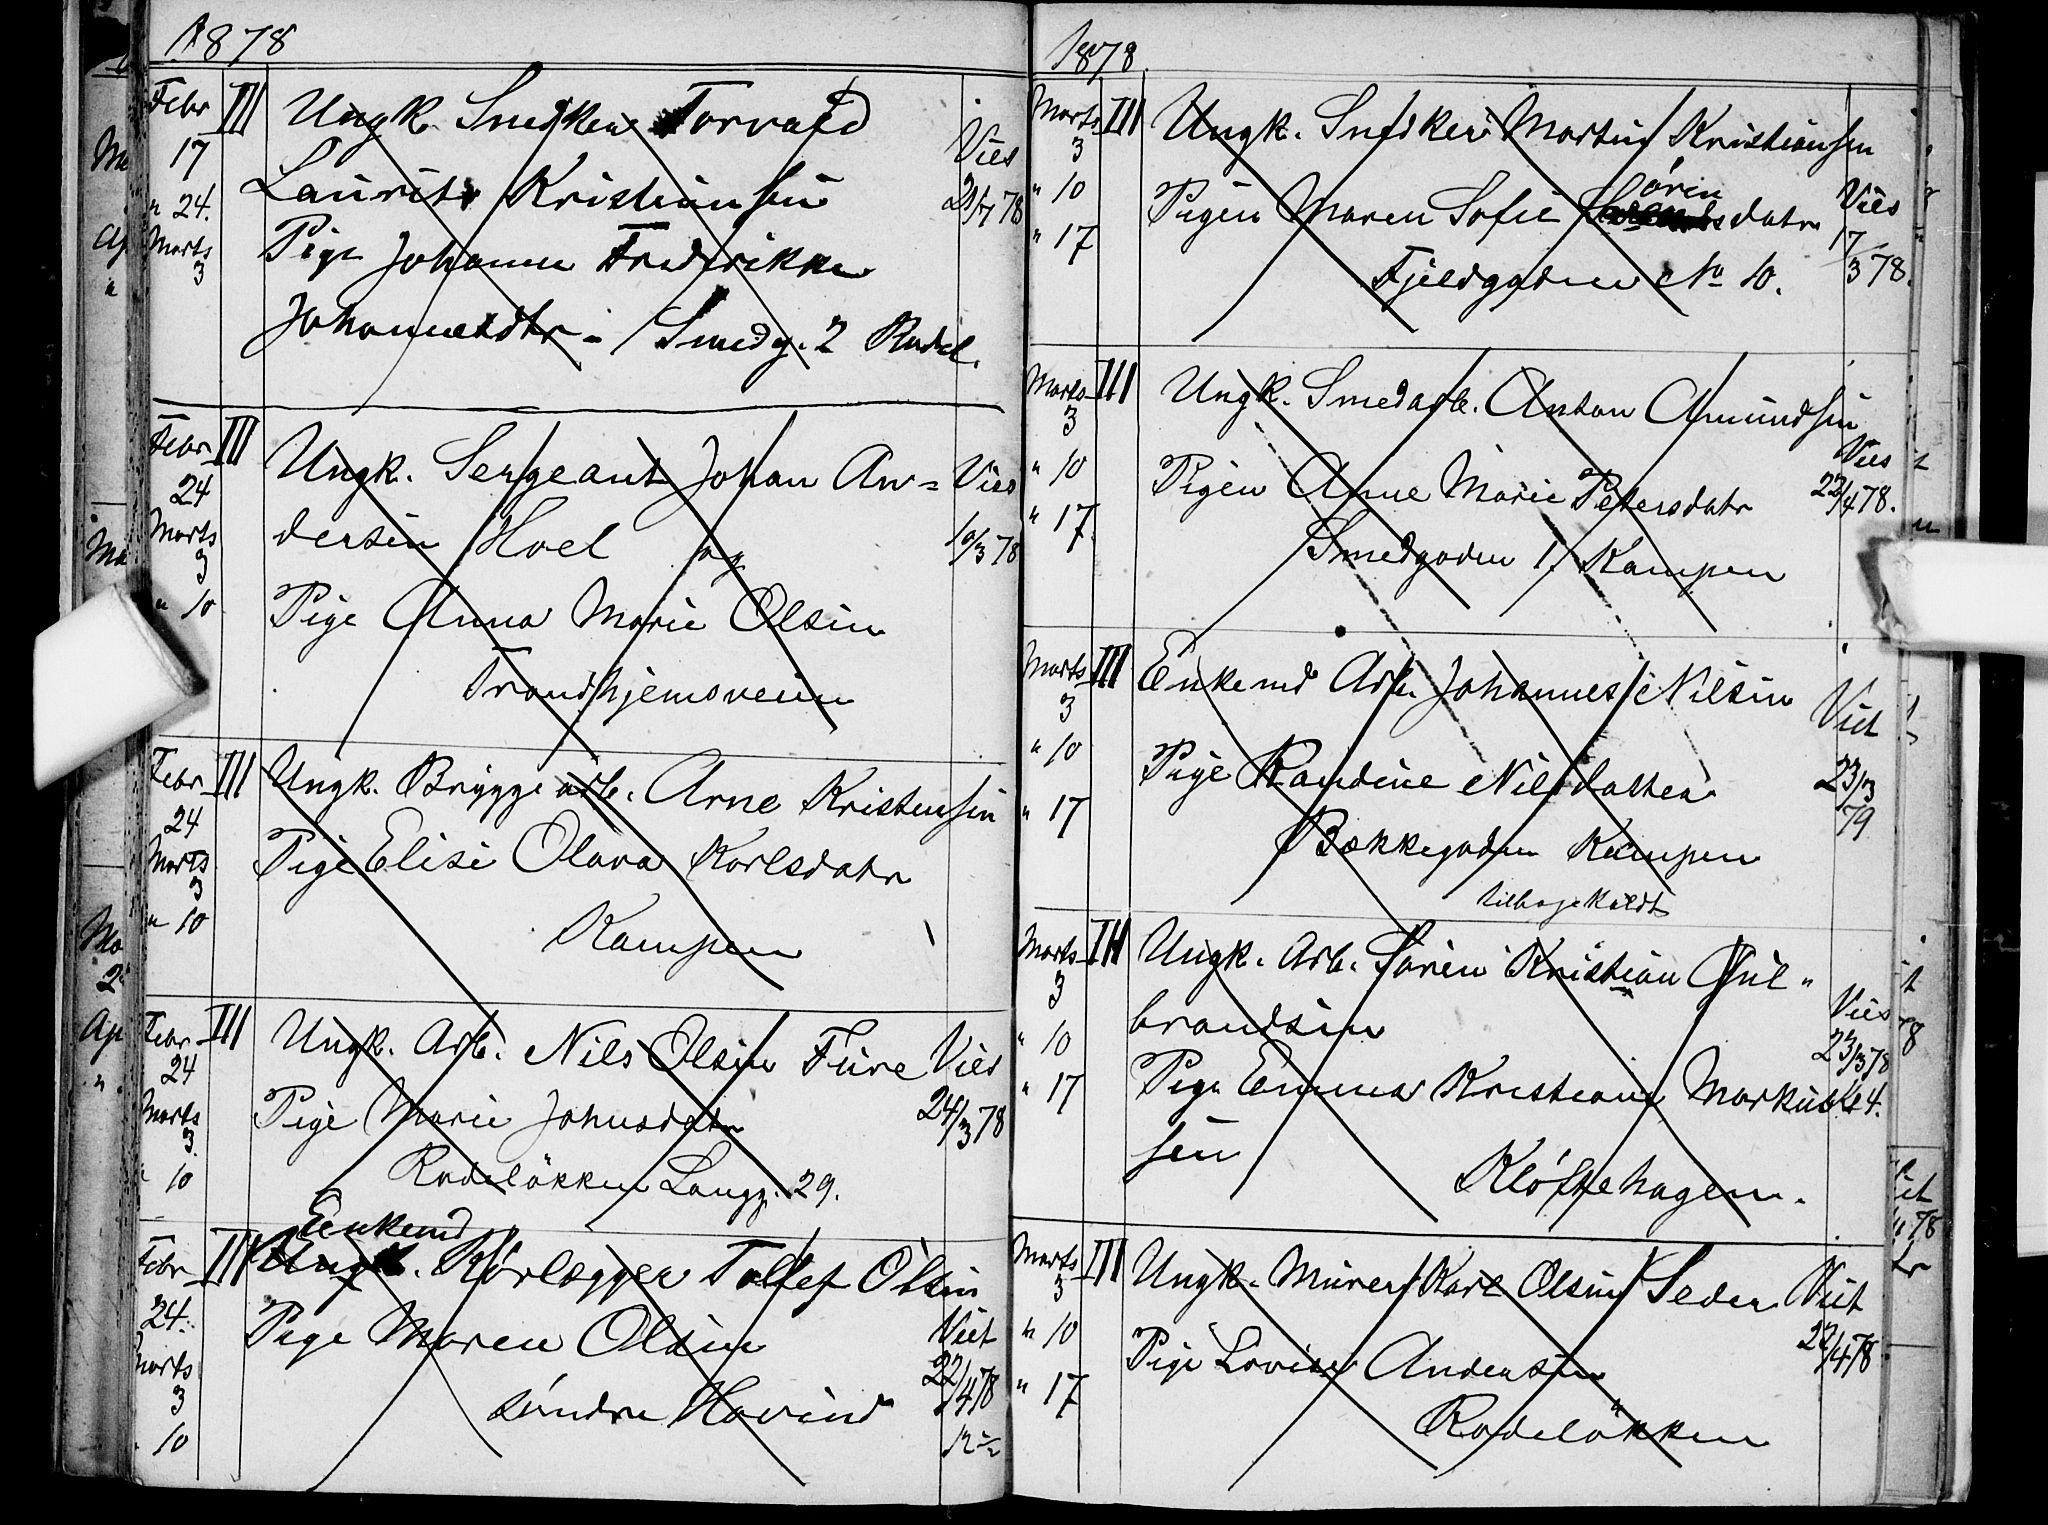 1878
Febr III Ungk. Snedker Torvald
17 Laurits Kristiansen Viet
" 24. 21/4 78
Marts Pige Johanne Fredrikke
3
Johannesdtr - Smedg. 2 Rodel.
Febr III Ungk. Sergeant Johan An= Viet
24
Marts dersen Hoel og 10/3 78
3
" 10 Pige Anna Marie Olsen
Trondhjemsveien
Febr III Ungk. Bryggearb. Arne Kristensen
24
Marts Pige Elise Olava Karlsdatr
3
" 10 Kampen
Febr III Ungk. Arb. Nils Olsen Fure Viet
24
Marts Pige Marie Johnsdatr 24/3 78
3.
" 10 Rodeløkken Langg. 29.
Enkemd
Febr III Ungk. Rørlægger Tollef Olsen
24. Pige Maren Olsen Viet
Marts 22/4 78
3 søndre Hovind
" 10
1878.
Marts III Ungk. Snedker Martin Kristiansen
3
" 10 Pigen Maren Sofie Sörensdatr Viet
" 17 17/3 78.
Fjeldgaden No 10.
Marts III Ungk. Smedarb. Anton Amundsen
3 Viet
" 10 Pigen Anne Marie Petersdatr 22/4 78.
" 17. Smedgaden 1. Kampen
Marts III Enkemd Arb. Johannes Nilsen
3 Viet
" 10 Pige Randine Nilsdatter 23/3
" 17 79
Bækkegaden Kampen
tilbagekaldt
Marts III Ungk. Arb. Sören Kristian Gul"
3 Viet
" 10 brandsen 23/3 78
" 17 Pige Emma Kristiane Markus Kl 4.
sen
Kløftehagen.
Marts III Ungk. Murer Karl Olsen Seder Viet
3
" 10 22/4 78
" 17 Pige Lovise Andersen
Rodeløkken